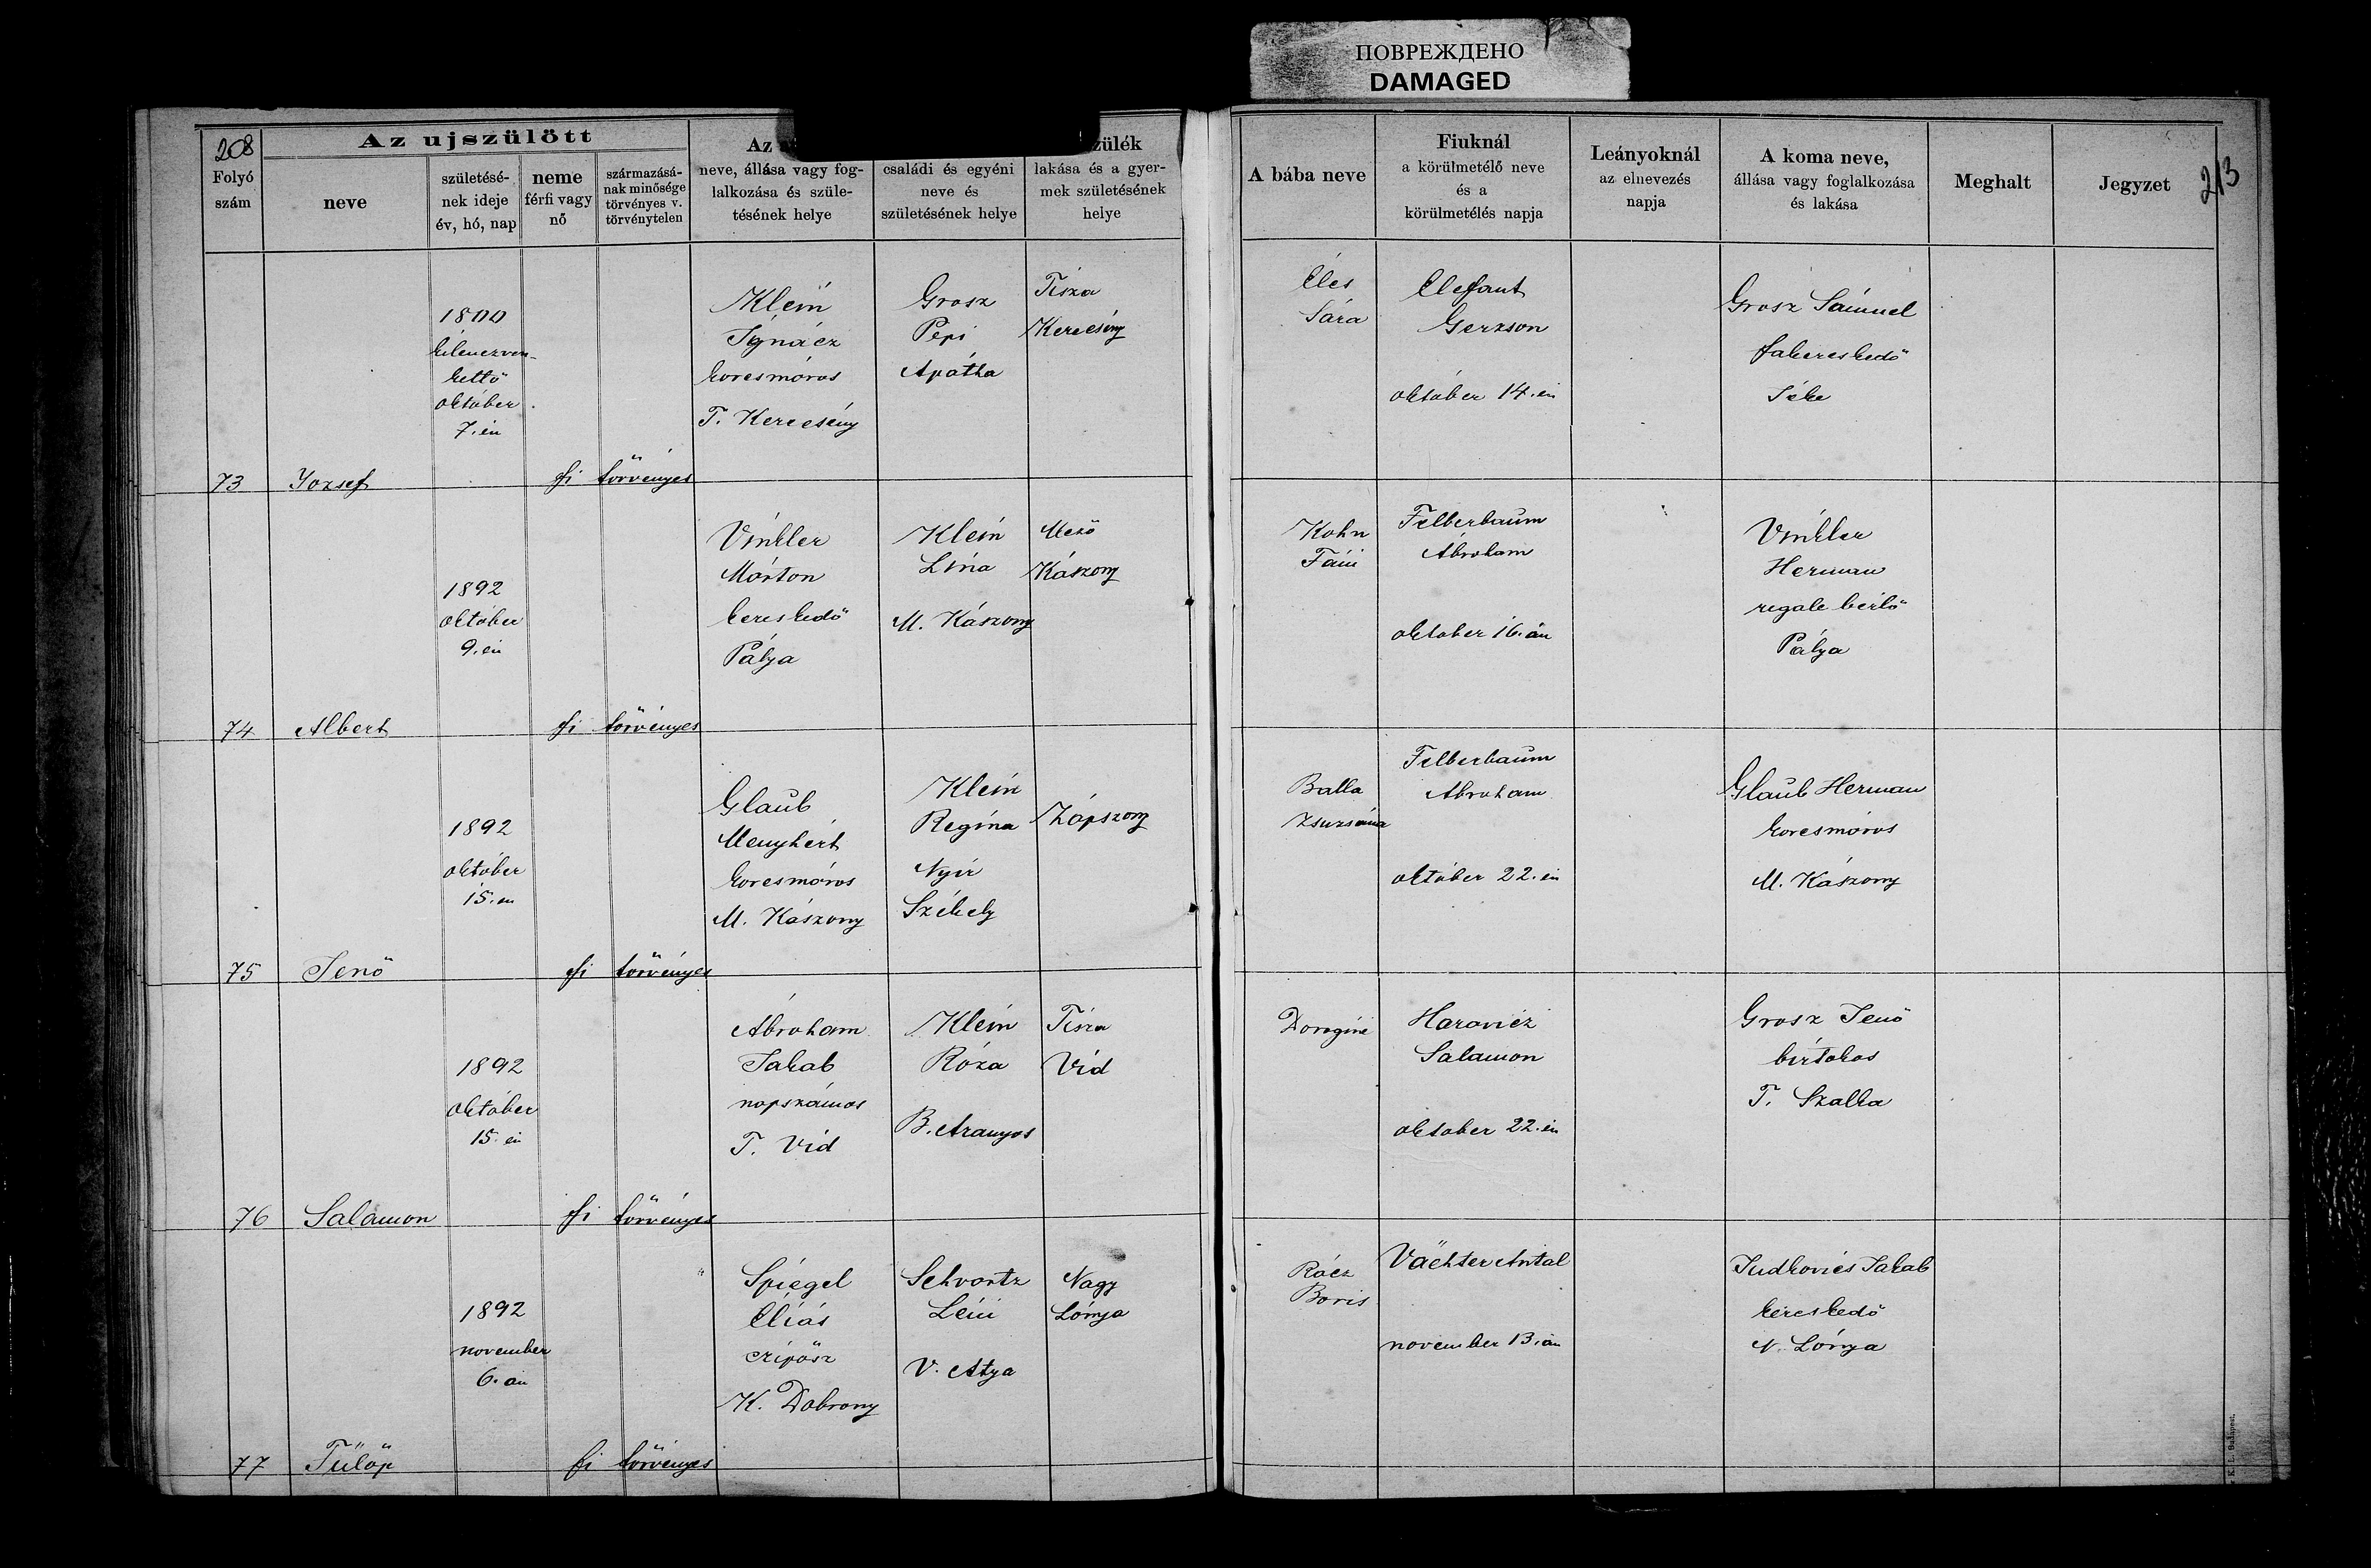 ПОВРЕЖДЕНО
DAMAGED
208
Folyó
szám
Az ujszülött
neve
születésé-
nek ideje
év, hó, nap
neme
férfi vagy
nő
származásá-
nak minősége
törvényes v.
törvénytelen
Az
neve, állása vagy fog-
lalkozása és szüle-
tésének helye
családi és egyéni
neve és
születésének helye
zülék
lakása és a gyer-
mek születésének
helye
A bába neve
Fiuknál
a körülmetélő neve
és a
körülmetélés napja
Leányoknál
az elnevezés
napja
A koma neve,
állása vagy foglalkozása
és lakása
Meghalt
Jegyzet
213
73
Jozsef
1800
kilenczven-
kettö
október
7. én
fi
törvényes
Klein
Ignácz
korcsmáros
T. Kerecsény
Grosz
Pepi
Apátha
Tisza
Kerecsény
Éles
Sára
Elefant
Gerzson
október 14. én
Grosz Sámuel
fakereskedö
Téke
74
Albert
1892
október
9. én
fi
törvényes
Vinkler
Márton
kereskedö
Pálya
Klein
Lina
M. Kászony
Mezö
Kászony
Kohn
Fáni
Felberbaum
Ábraham
oktober 16. án
Vinkler
Herman
regale bérlö
Pálya
75
Jenö
1892
október
15. én
fi
törvényes
Glaub
Menyhért
korcsmáros
M. Kászony
Klein
Regina
Nyir
Székely
Zápszony
Balla
Zsuzsána
Felberbaum
Abraham
október 22. én
Glaub Herman
korcsmáros
M. Kászony
76
Salamon
1892
október
15. én
fi
törvényes
Ábraham
Jakab
napszámos
T. Vid
Klein
Róza
B. Aranyos
Tisza
Vid
Doroginé
Haravicz
Salamon
oktober 22. én
Grosz Jenö
birtokos
T. Szalka
77
Fülöp
1892
november
6. án
fi
törvényes
Spiegel
Eliás
czipösz
K. Dobrony
Schvartz
Léni
V. Atya
Nagy
Lónya
Rácz
Boris
Vächter Antal
november 13. án
Judkovics Jakab
kereskedö
N. Lónya